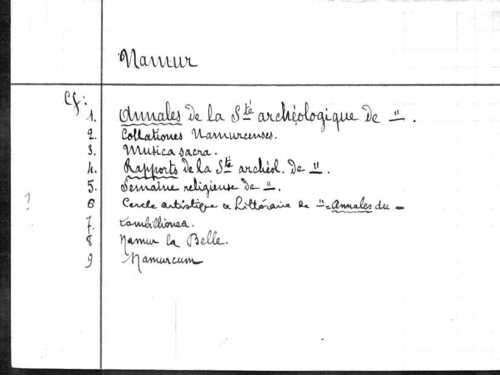 Namur
Cf:
1. Annales de la Sté archéologique de " .
2. Collationes Namurcenses.
3. Musica sacra.
4. Rapports de la Sté archéol. de " .
5. Semaine religieuse de " .
? 6 Cercle artistique & Littéraire de " = Annales du -
7. Lambillionea.
8 Namur la Belle.
9 Namurcum